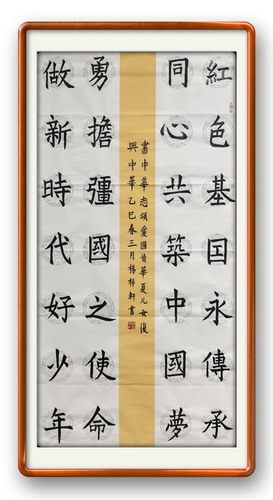 紅色基因永傳承
同心共築中國夢
書中華志頌愛國情華夏儿女復
興中華乙巳春三月楊梓軒書
勇擔彊國之使命
做新時代好少年